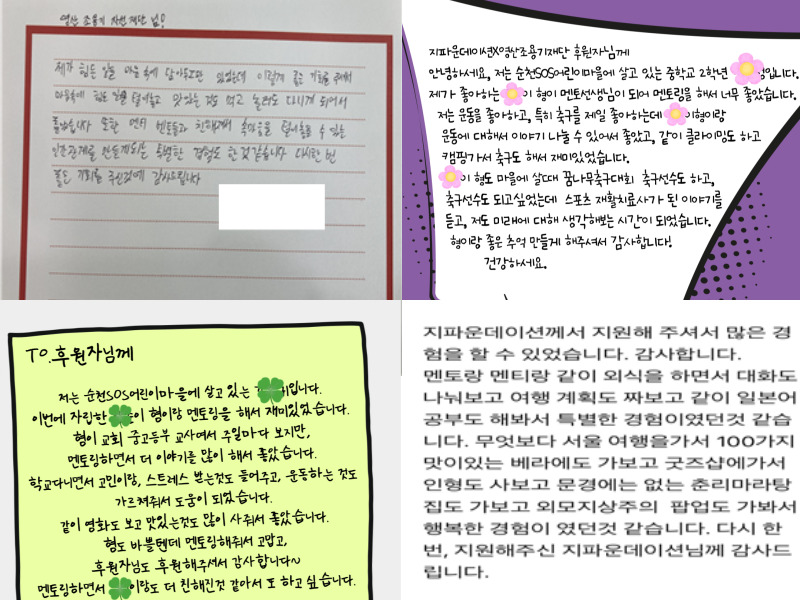 영산 조용기 자선 재단 님!
제가 힘든 일을 마음 속에 담아두고만 있었는데 이렇게 좋은 기회를 주셔서
마음속에 힘든 것을 털어놓고 맛있는 것도 먹고 놀러도 다니게 되어서
좋았습니다 또한 멘티 멘토들과 친해져서 속마음을 털어놓을 수 있는
인간관계를 만들게되는 특별한 경험도 한 것 같습니다 다시한 번
좋은 기회를 주신것에 감사드립니다
지파운데이션X영산조용기재단 후원자님께
안녕하세요, 저는 순천SOS어린이마을에 살고 있는 중학교 2학년 정입니다.
제가 좋아하는 이 형이 멘토선생님이 되어 멘토링을 해서 너무 좋았습니다.
저는 운동을 좋아하고, 특히 축구를 제일 좋아하는데 이형이랑
운동에 대해서 이야기 나눌 수 있어서 좋았고, 같이 클라이밍도 하고
캠핑가서 축구도 해서 재미있었습니다.
이 형도 마을에 살때 꿈나무축구대회 축구선수도 하고,
축구선수도 되고싶었는데 스포츠 재활치료사가 된 이야기를
듣고, 저도 미래에 대해 생각해보는 시간이 되었습니다.
형이랑 좋은 추억 만들게 해주셔서 감사합니다!
건강하세요.
TO.후원자님께
저는 순천SOS어린이마을에 살고 있는 입니다.
이번에 자립한 이 형이랑 멘토링을 해서 재미있었습니다.
형이 교회 중고등부 교사여서 주일마다 보지만,
멘토링하면서 더 이야기를 많이 해서 좋았습니다.
학교다니면서 고민이랑, 스트레스 받는것도 들어주고, 운동하는 것도
가르쳐줘서 도움이 되었습니다.
같이 영화도 보고 맛있는것도 많이 사줘서 좋았습니다.
형도 바쁠텐데 멘토링해줘서 고맙고,
후원자님도 후원해주셔서 감사합니다~
멘토링하면서 이랑도 더 친해진것 같아서 또 하고 싶습니다.
지파운데이션께서 지원해 주셔서 많은 경
험을 할 수 있었습니다. 감사합니다.
멘토랑 멘티랑 같이 외식을 하면서 대화도
나눠보고 여행 계획도 짜보고 같이 일본어
공부도 해봐서 특별한 경험이였던것 같습
니다. 무엇보다 서울 여행을가서 100가지
맛이있는 베라에도 가보고 굿즈샵에가서
인형도 사보고 문경에는 없는 춘리마라탕
집도 가보고 외모지상주의 팝업도 가봐서
행복한 경험이 였던것 같습니다. 다시 한
번, 지원해주신 지파운데이션님께 감사드
립니다.